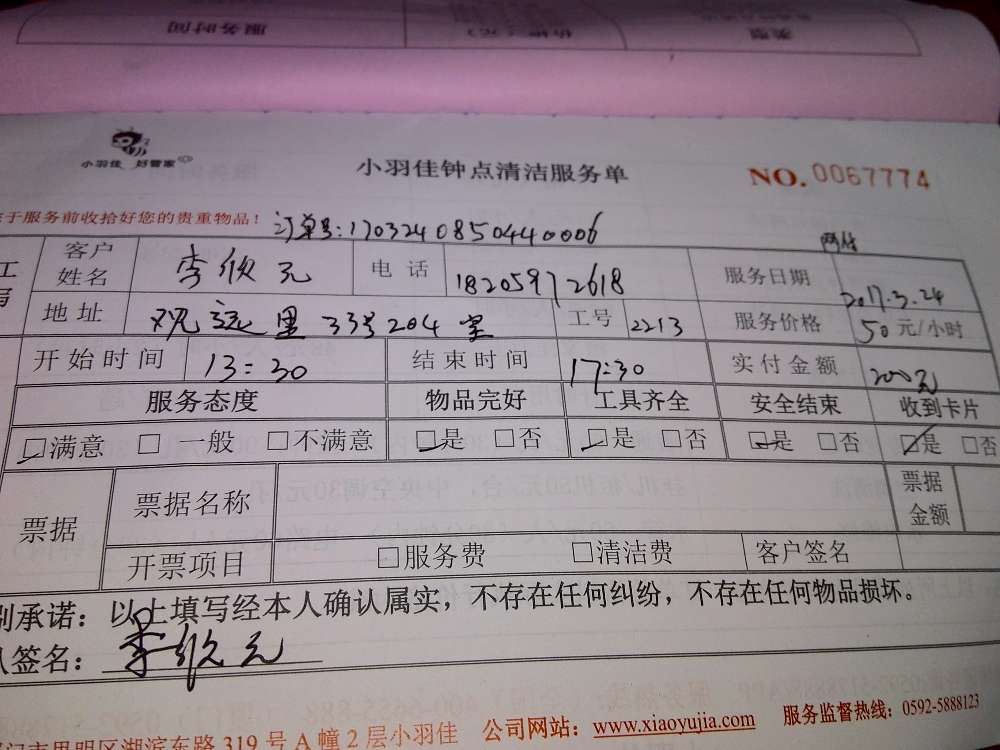 服务时间 价格（元） 类型
小羽佳 好管家
小羽佳钟点清洁服务单 NO. 0067774
于服务前收拾好您的贵重物品！ 订单号:1703240850440006
客户姓名 李欣元 电话 18205972618 服务日期 2017.3.24
地址 观远里33号204室 工号 2213 服务价格 50元/小时
开始时间 13:30 结束时间 17:30 实付金额 200元
服务态度 物品完好 工具齐全 安全结束 收到卡片
☑满意 □一般 □不满意 ☑是 □否 ☑是 □否 ☑是 □否 ☑是 □否
票据 票据名称 票据金额
开票项目 □服务费 □清洁费 客户签名
别承诺：以上填写经本人确认属实，不存在任何纠纷，不存在任何物品损坏。
签名：李欣元
门市思明区湖滨东路 319 号 A 幢 2 层小羽佳 公司网站：www.xiaoyujia.com 服务监督热线：0592-5888123